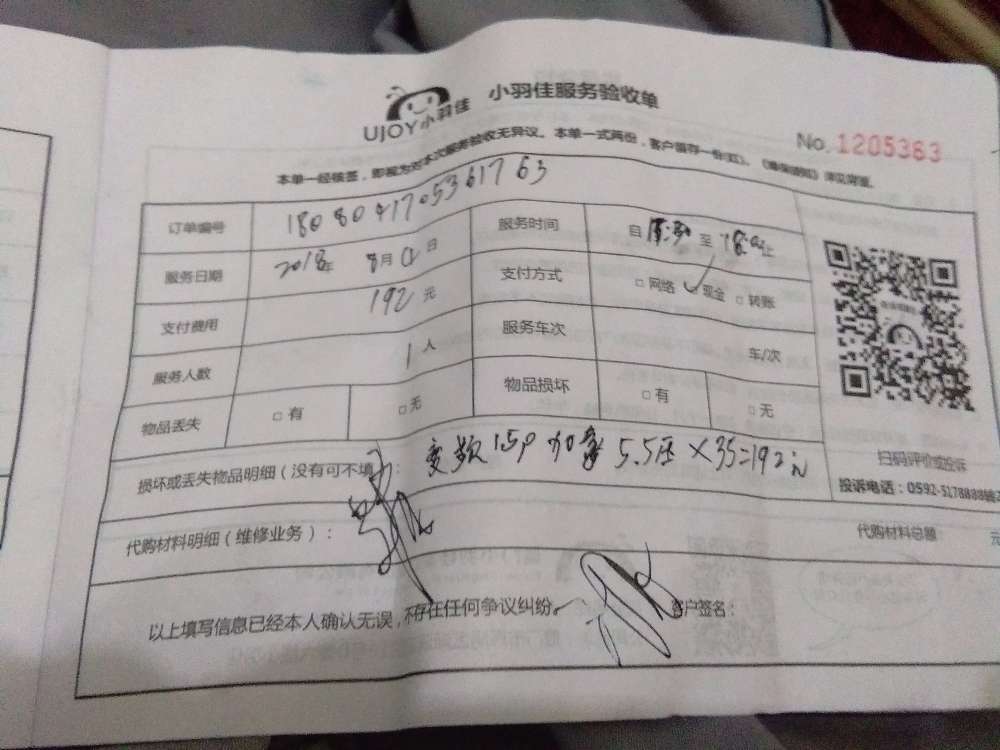 UJOY小羽佳 小羽佳服务验收单
No. 1205363
本单一经核签，即视为对本次服务验收无异议。本单一式两份，客户留存一份(红)。
订单编号 1808041705361763 服务时间 自 至 止
服务日期 2018年 8月 日 支付方式 □网络 ☑现金 □转账
支付费用 192 元 服务车次 车/次
服务人数 1 人 物品损坏 □有 □无
物品丢失 □有 □无
损坏或丢失物品明细（没有可不填）： 1.5P 加 5.5压 ×35=192元
扫码评价或投诉
投诉电话：0592-5178888
代购材料明细（维修业务）： 代购材料总额 元
以上填写信息已经本人确认无误，不存在任何争议纠纷。 客户签名：